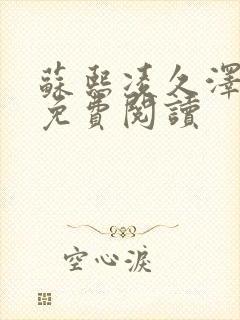 蘇熙凌久澤
免費閱讀
空心淚